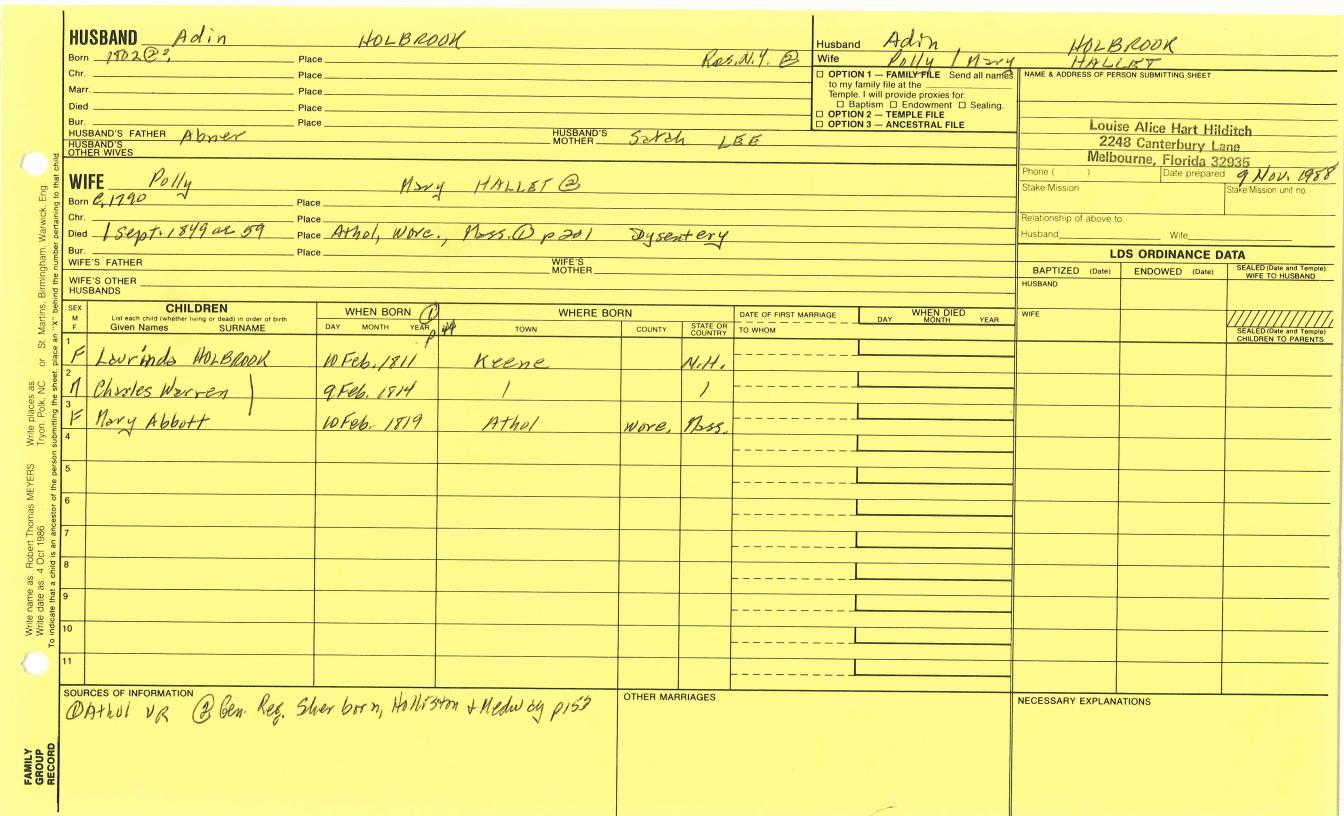 HUSBAND Adin HOLBROOK
Born 1802 ②?, Place Res. N.Y. ②
Chr. Place
Marr. Place
Died Place
Bur. Place
HUSBAND'S FATHER Abner HUSBAND'S MOTHER Sarah LEE
HUSBAND'S OTHER WIVES
Husband Adin HOLBROOK
Wife Polly / Mary HALLET
☐ OPTION 1 — FAMILY FILE Send all names
to my family file at the
Temple. I will provide proxies for:
☐ Baptism ☐ Endowment ☐ Sealing.
☐ OPTION 2 — TEMPLE FILE
☐ OPTION 3 — ANCESTRAL FILE
NAME & ADDRESS OF PERSON SUBMITTING SHEET
Louise Alice Hart Hilditch
2248 Canterbury Lane
Melbourne, Florida 32935
Phone ( ) Date prepared 9 Nov. 1988
Stake/Mission Stake/Mission unit no.
Relationship of above to:
Husband Wife
WIFE Polly Mary HALLET ②
Born c.1790 Place
Chr. Place
Died 1 Sept. 1849 ae 59 Place Athol, Worc., Mass. ① p201 Dysentery
Bur. Place
WIFE'S FATHER WIFE'S MOTHER
WIFE'S OTHER HUSBANDS
LDS ORDINANCE DATA
BAPTIZED (Date) ENDOWED (Date) SEALED (Date and Temple) WIFE TO HUSBAND
HUSBAND
WIFE
SEALED (Date and Temple) CHILDREN TO PARENTS
SEX M F
CHILDREN
List each child (whether living or dead) in order of birth
Given Names SURNAME
WHEN BORN ①
DAY MONTH YEAR
WHERE BORN
TOWN COUNTY STATE OR COUNTRY
DATE OF FIRST MARRIAGE
TO WHOM
WHEN DIED
DAY MONTH YEAR
1 F Laurinda HOLBROOK 10 Feb. 1811 Keene N.H.
2 M Charles Warren 9 Feb. 1814
3 F Mary Abbott 10 Feb. 1819 Athol Worc. Mass.
4
5
6
7
8
9
10
11
SOURCES OF INFORMATION
① Athol VR ② Gen. Reg. Sherborn, Holliston & Medway p152
OTHER MARRIAGES
NECESSARY EXPLANATIONS
Write name as Robert Thomas MEYERS Write places as Tryon, Polk, NC or St. Martins, Birmingham, Warwick, Eng
Write date as 4 Oct 1986
To indicate that a child is an ancestor of the person submitting the sheet, place an "X" behind the number pertaining to that child
FAMILY
GROUP
RECORD